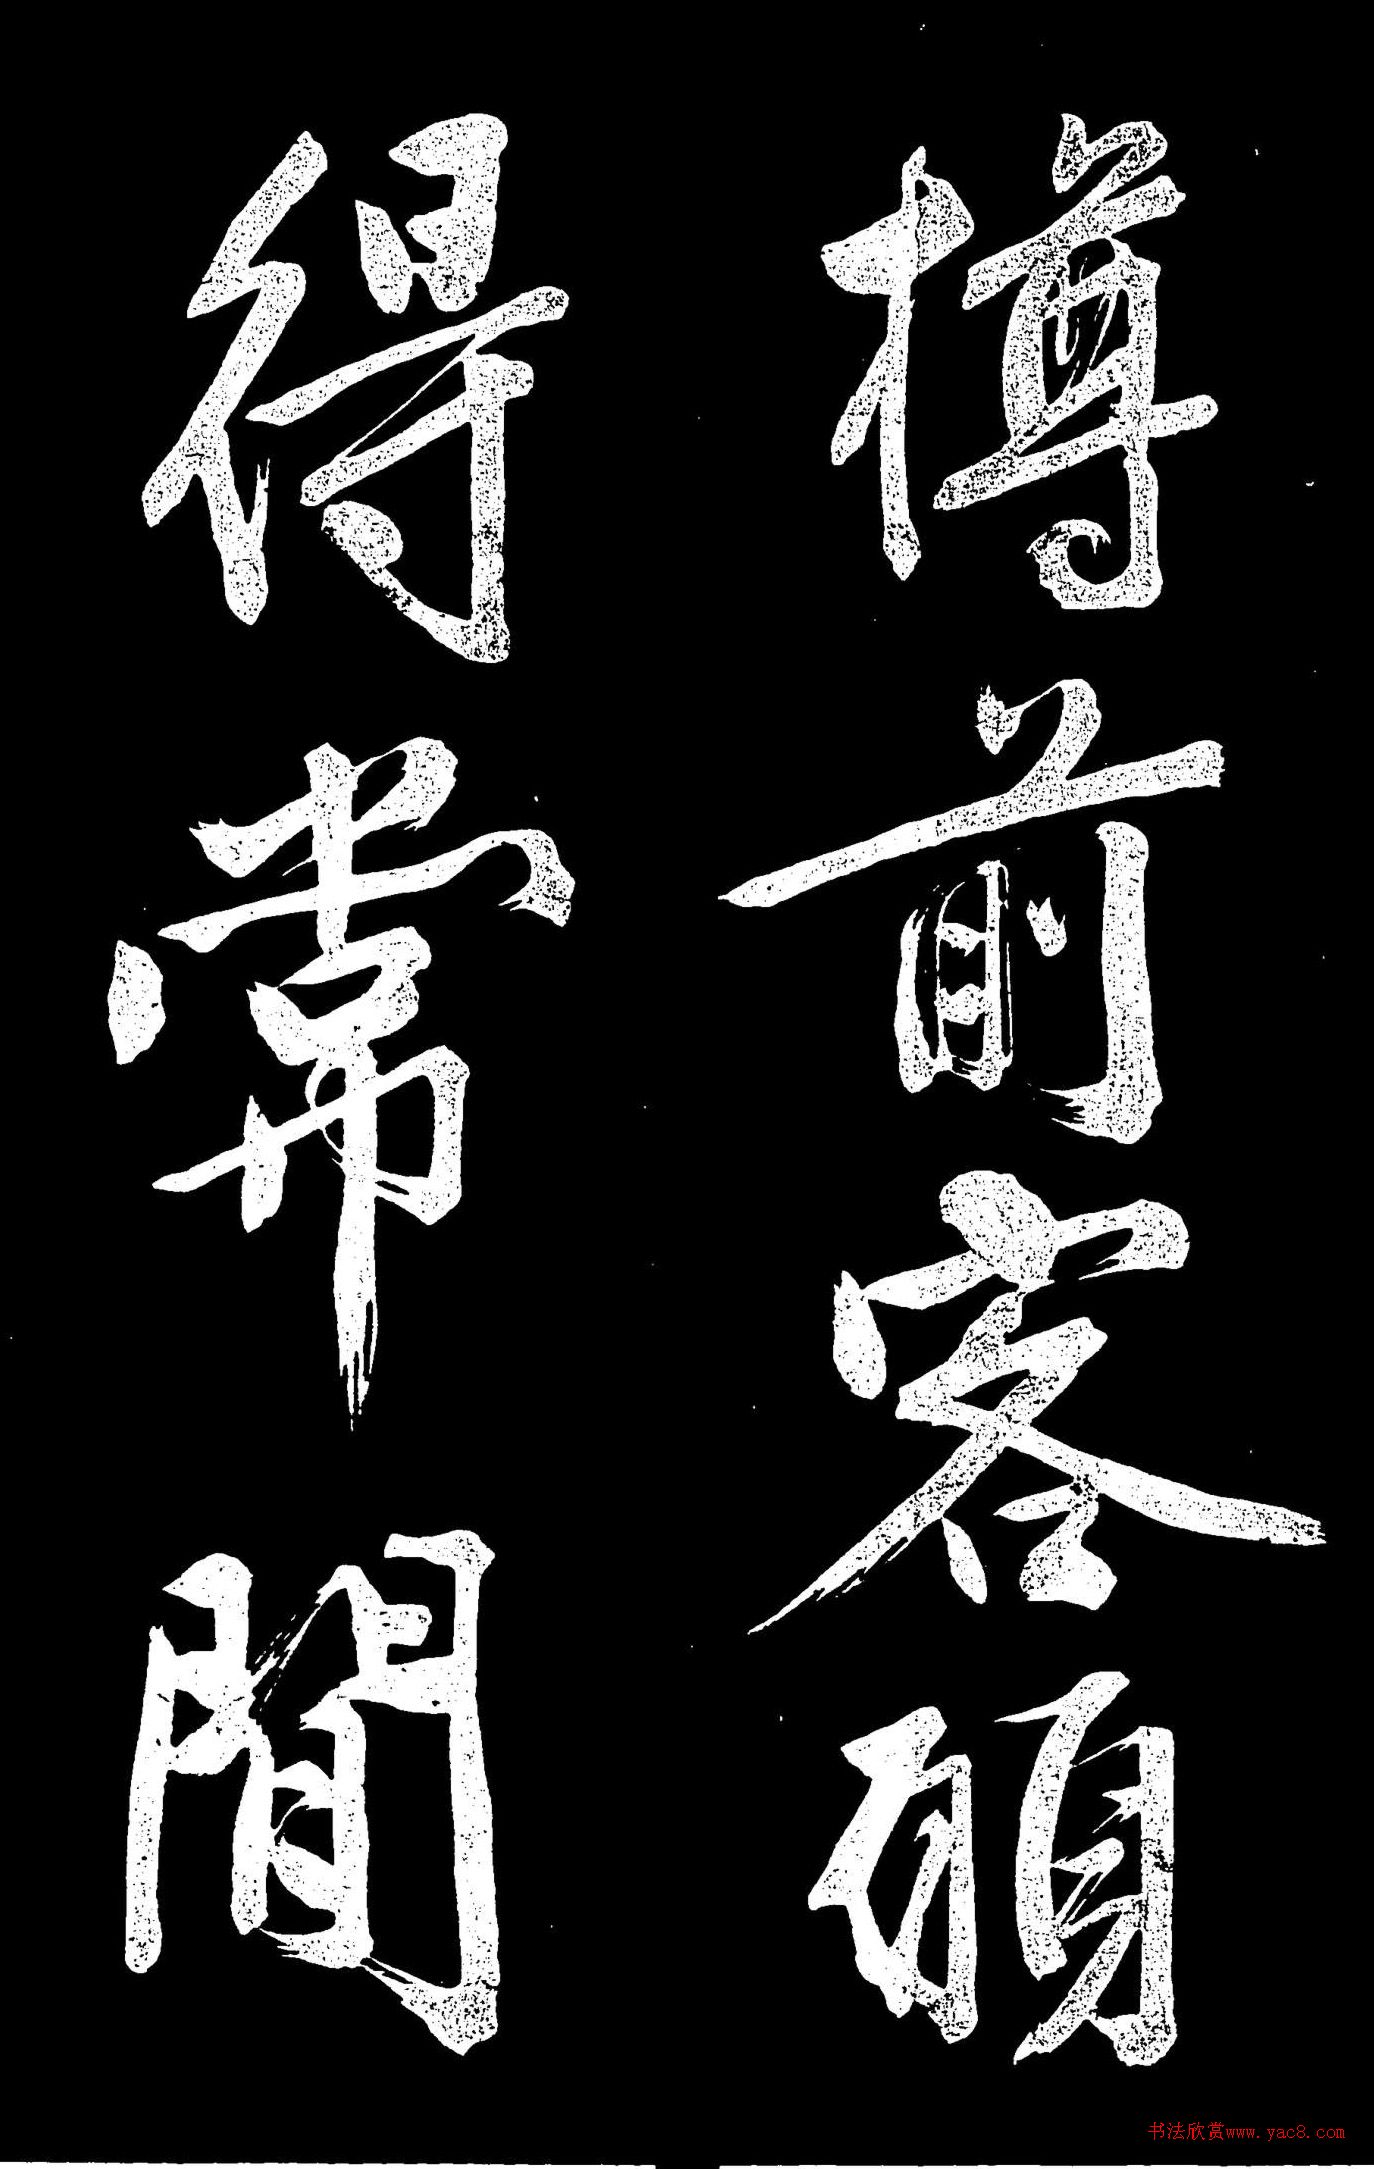 樽前客
得常閒
书法欣赏www.yac8.com